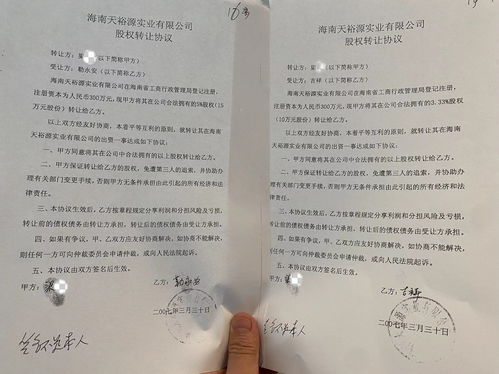 16号
海南天裕源实业有限公司
股权转让协议
转让方：（以下简称甲方）
受让方：勒永安（以下简称乙方）
海南天裕源实业有限公司在海南省工商行政管理局登记注册，
注册资本为人民币300万元，现甲方将其在公司合法拥有的5%股权（15
万元股份）转让给乙方。
以上双方经友好协商，本着平等互利的原则，就转让其在海南
天裕源实业有限公司的出资一事达成如下协议：
一、甲方同意将其在公司中合法拥有的以上股权转让给乙方。
二、甲方保证转让给乙方的股权，免遭第三人的追索，并协助办
理有关部门变更手续，否则甲方无条件承担由此引起的所有经济和法
律责任。
三、本协议生效后，乙方按章程规定分享利润和分担风险及亏损，
转让前的债权债务由转让方承担，转让后的债权债务由受让方承担。
四、如果有争议，甲、乙双方应友好协商解决，如协商不能解决，
则任何一方可向仲裁委员会申请仲裁，或向人民法院起诉。
五、本协议由双方签名后生效。
甲方： 乙方：勒永安
二00七年三月三十日
签名不是本人
海南天裕源实业有限公司
股权转让协议
转让方：（以下简称甲方）
受让方：吉祥（以下简称乙方）
海南天裕源实业有限公司在海南省工商行政管理局登记注册，
注册资本为人民币300万元，现甲方将其在公司合法拥有的3.33%股权
（10万元股份）转让给乙方。
以上双方经友好协商，本着平等互利的原则，就转让其在海南
天裕源实业有限公司的出资一事达成如下协议：
一、甲方同意将其在公司中合法拥有的以上股权转让给乙方。
二、甲方保证转让给乙方的股权，免遭第三人的追索，并协助办
理有关部门变更手续，否则甲方无条件承担由此引起的所有经济和法
律责任。
三、本协议生效后，乙方按章程规定分享利润和分担风险及亏损，
转让前的债权债务由转让方承担，转让后的债权债务由受让方承担。
四、如果有争议，甲、乙双方应友好协商解决，如协商不能解决，
则任何一方可向仲裁委员会申请仲裁，或向人民法院起诉。
五、本协议由双方签名后生效。
甲方： 乙方：吉祥
二00七年三月三十日
签名不是本人